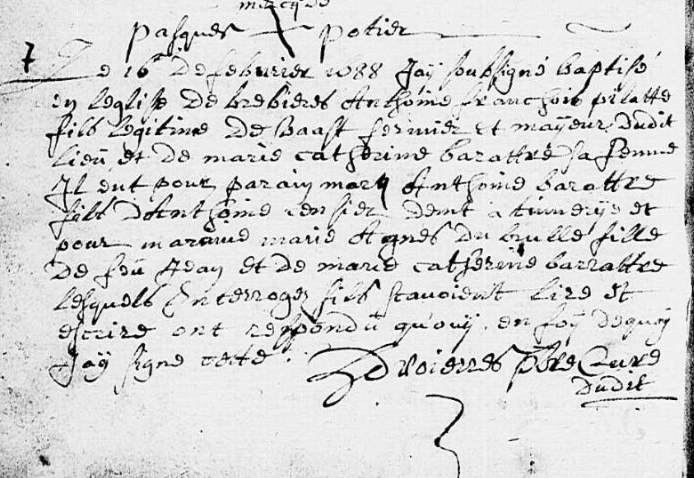 pasques potier
7
Le 16 De febvrier 1688 Jay soubsigné baptisé
en leglise De brebieres Anthoine franchois pilatte
fils legitime De Vaast fermier et mayeur dudit
lieu et de marie catherine barattre sa femme
Il eut pour parain Anthoine barattre
fils DAnthoine censier demt a et
pour maraine marie Agnes Du brulle fille
De feu Jean et De marie catherine barrattre
lesquels Interrogez sils scavoient lire et
escrire ont respondu quouy. en foy dequoy
Jay signe cette
pbre Curé
dudit